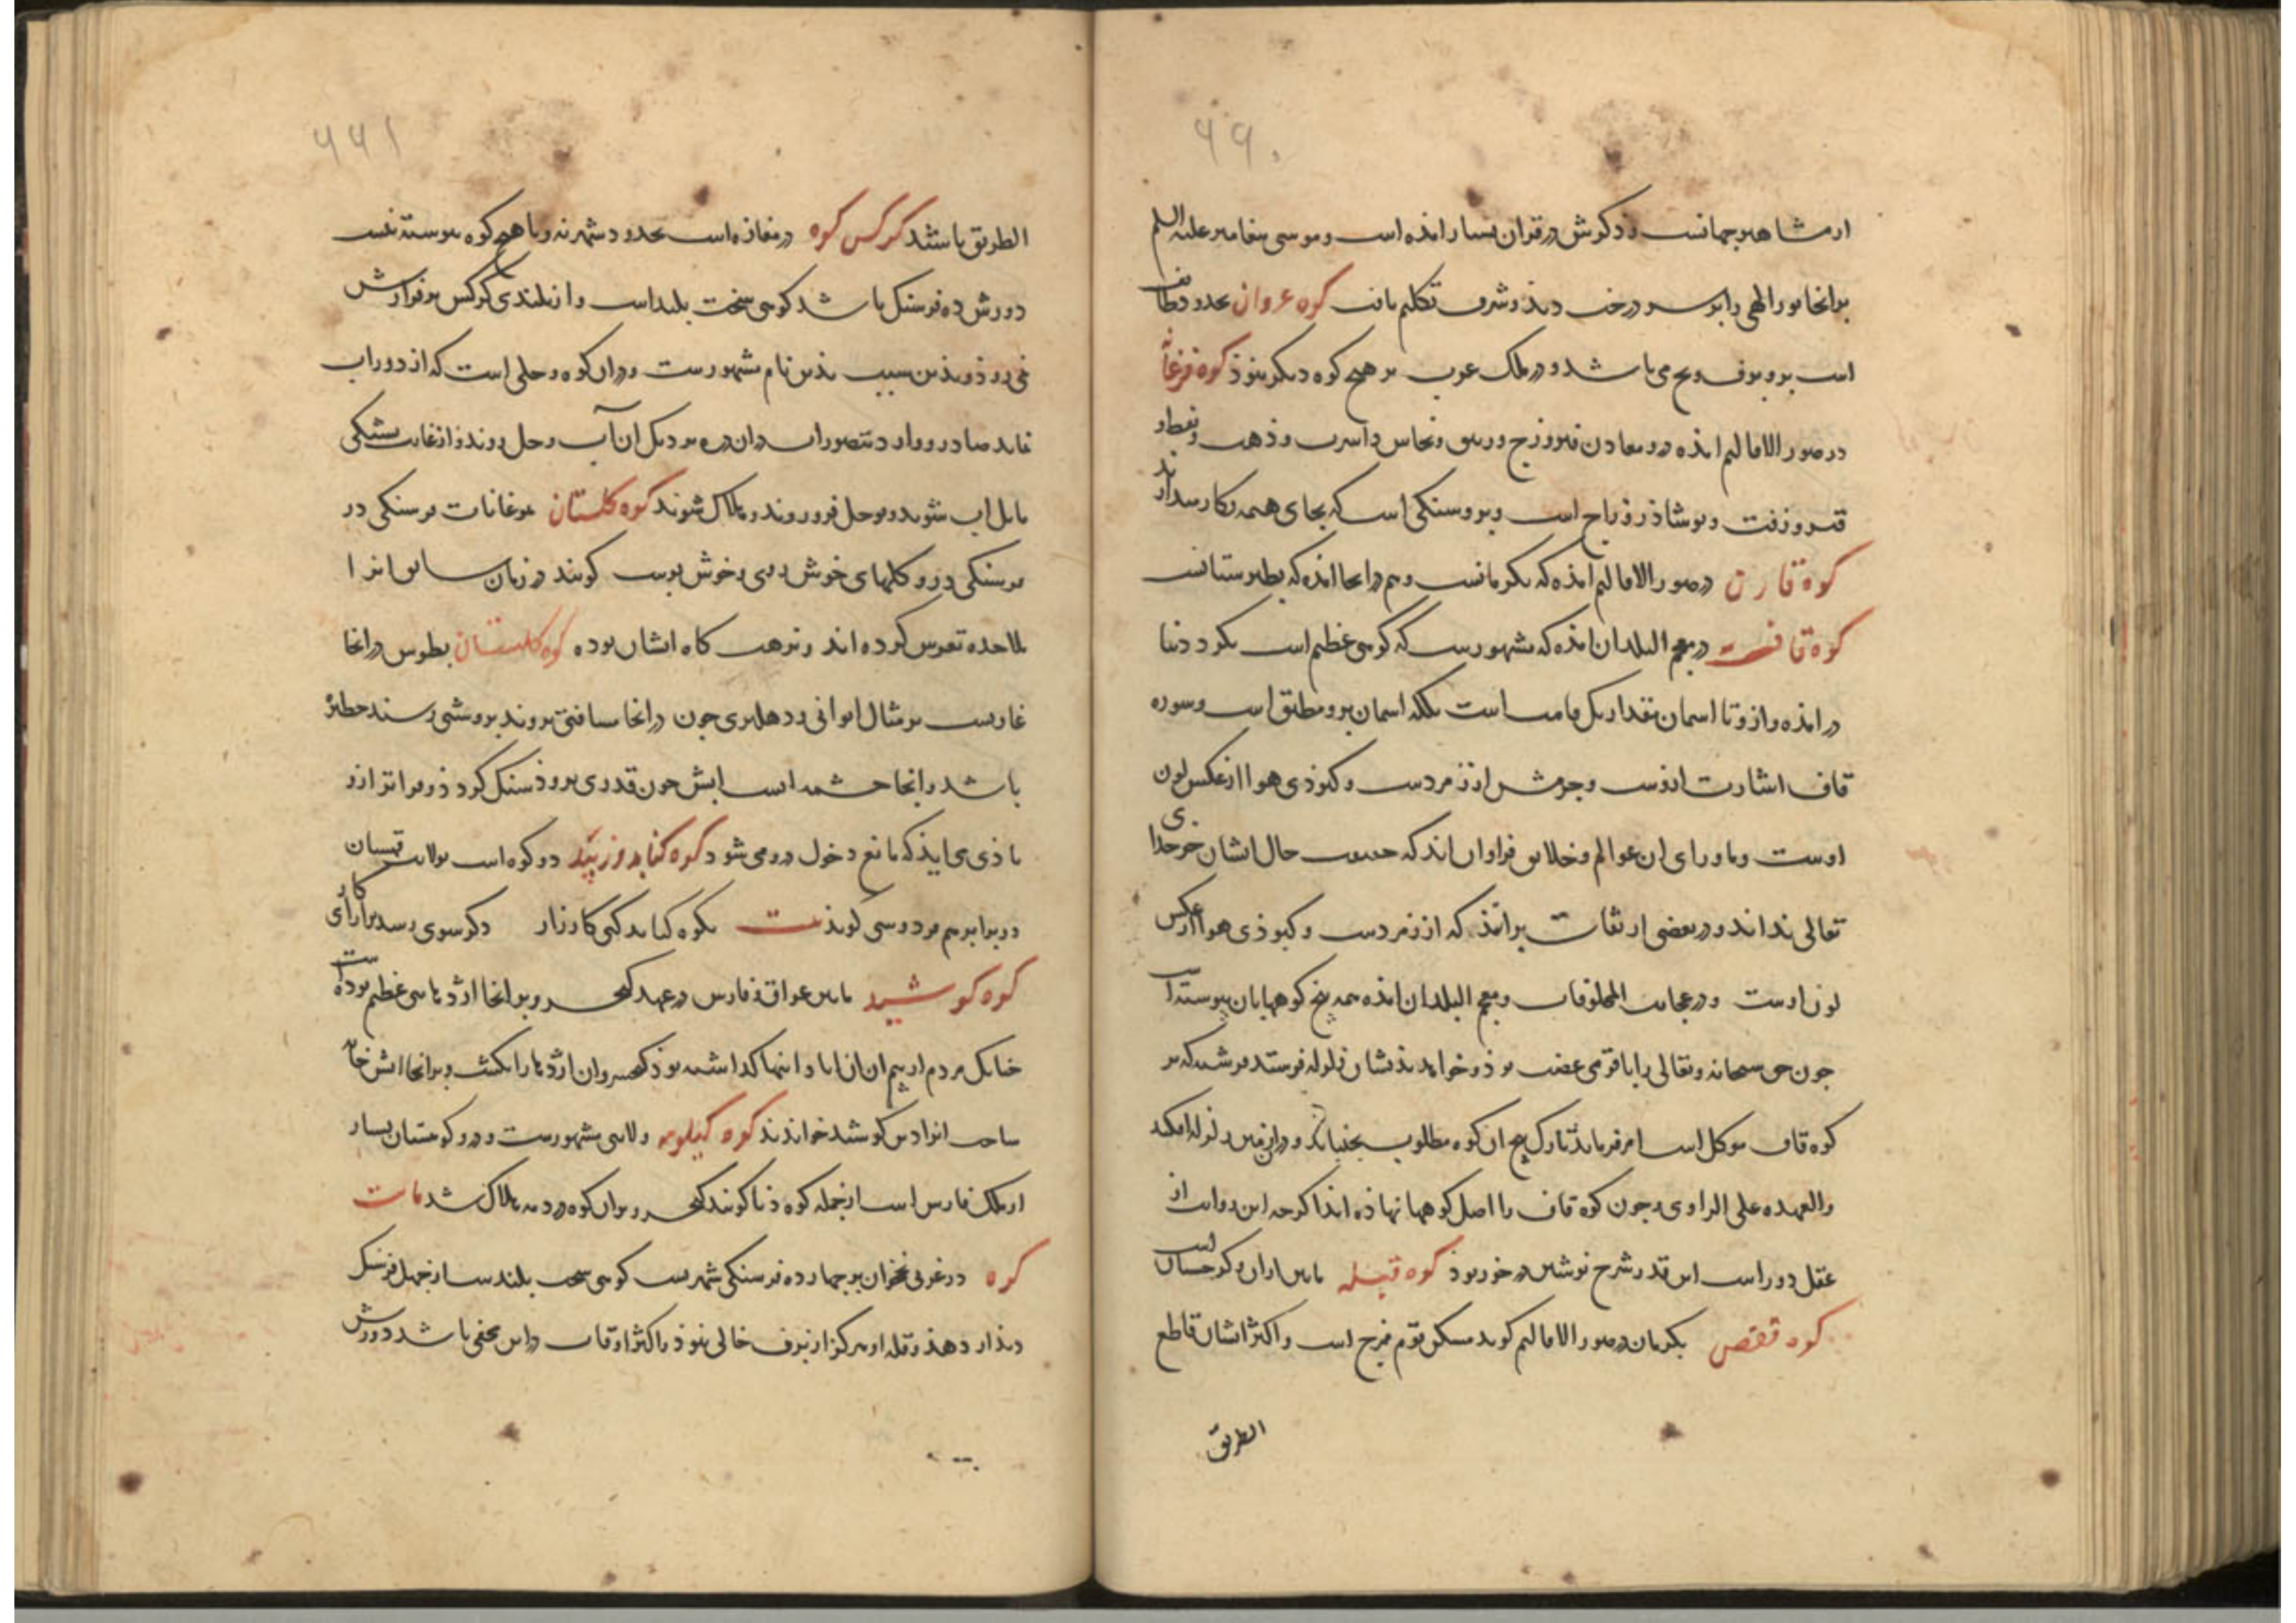 ۶۶۰
از مشاهیر جهانست و ذکرش در قران بسیار امذه است و موسی پیغامبر علیه السلم
برانجا نور الهی را بر سر درخت دیذ و شرف تکلیم یافت کوه غزوان بحدود طائف
است برو برف و یخ می باشد و در ملک عرب بر هیچ کوه دیگر نبوذ کوه فرغانه
در صور الاقالیم امذه درو معادن فیروزج و زیبق و نحاس و اسرب و ذهب و نفط و
قیر و زفت و نوشاذر و زاج است و برو سنگی است که بجای هیمه بکار میدارند
کوه قارن در صور الاقالیم امذه که بکرمانست و هم درانجا امذه که بطبرستانست
کوه قاف در معجم البلدان امذه که مشهورست که کوهی عظیم است بگرد دنیا
در امذه و ازو تا اسمان مقدار یک قامت است بلکه اسمان برو مطبق است و سوره
قاف اشارت ازوست و جرمش از زمردست و کبوذی هوا از عکس لون
اوست و ماورای ان عوالم و خلایق فراوان اند که حقیقت حال ایشان جز خدای
تعالی نداند و در بعضی از ثقات برانند که از زمردست و کبوذی هوا از عکس
لون اوست و در عجایب المخلوقات و معجم البلدان امذه همه بیخ کوهها بان پیوسته است
چون حق سبحانه و تعالی را با قومی غضب بوذ و خواهد بذیشان زلزله فرستد فرشته که بر
کوه قاف موکل است امر فرماید تا رک و بیخ ان کوه مطلوب بجنباند و دران زمین زلزله افکند
والعهده علی الراوی و چون کوه قاف را اصل کوهها نهاذه اند اگرچه این روایت از
عقل دور است این قدر شرح نوشتن در خور بوذ کوه قبله مابین اران و کرجستان است
کوه قفص بکرمان در صور الاقالیم کوید مسکن قوم است و اکثر ایشان قاطع
الطریق
۶۶۱
الطریق باشند کرکس کوه در مفازه است بحدود شهر نه و با هیچ کوه پیوسته نیست
دورش ده فرسنگ باشد کوهی سخت بلند است و از بلندی کرکس بر فرازش
نمی رود و بذین سبب بذین نام مشهورست و دران کوه وحلی است که از دور اب
نماید صادر و وارد بتصور اب دران دره بر دیکر ان آب و حل روند و از غایت تشنگی
مایل اب شوند و بوحل فرو روند و هلاک شوند کوه کلستان فرسنگی در
فرسنگی درو کلهای خوش روی و خوش بوست گویند در زمان سابق انرا
ملاحده تعرس کرده اند و نزهت گاه ایشان بوده کوه کلستان بطوس درانجا
غاریست بر مثال ایوانی و دهلیزی چون درانجا مسافتی بروند بروشنی رسند حظیره
باشد و انجا چشمه است ابش چون قدری برود سنگ گردد و فراتر ازو
باذی می ایذ که مانع دخول درو می شود کوه کنابد و زیبد دو کوه است بولایت قهستان
در برابر هم فردوسی کوید بیت بکوه کنابد کنی کارزار دگر سوی رسد برارای کار
کوه کوشید مابین عراق و فارس در عهد کیخسرو برانجا اژدهایی عظیم بوده است
چنانک مردم از بیم ان ان اباذانیها کذاشته بوذ کیخسرو ان اژدها را بکشت و برانجا اتش خانه
ساخت انرا دیر کوشید خواندند کوه کیلویه ولایتی مشهورست و درو کوهستان بسیار
از ملک فارس است از جمله کوه دنا کویند کیخسرو بران کوه در دمه هلاک شد ماست
کوه در غربی نخجوان بر چهارده فرسنگی شهرست کوهی سخت بلندست از چهل فرسنگ
دیدار دهد و قله او هرکز از برف خالی نبوذ و اکثر اوقات در ابر مخفی باشد دورش